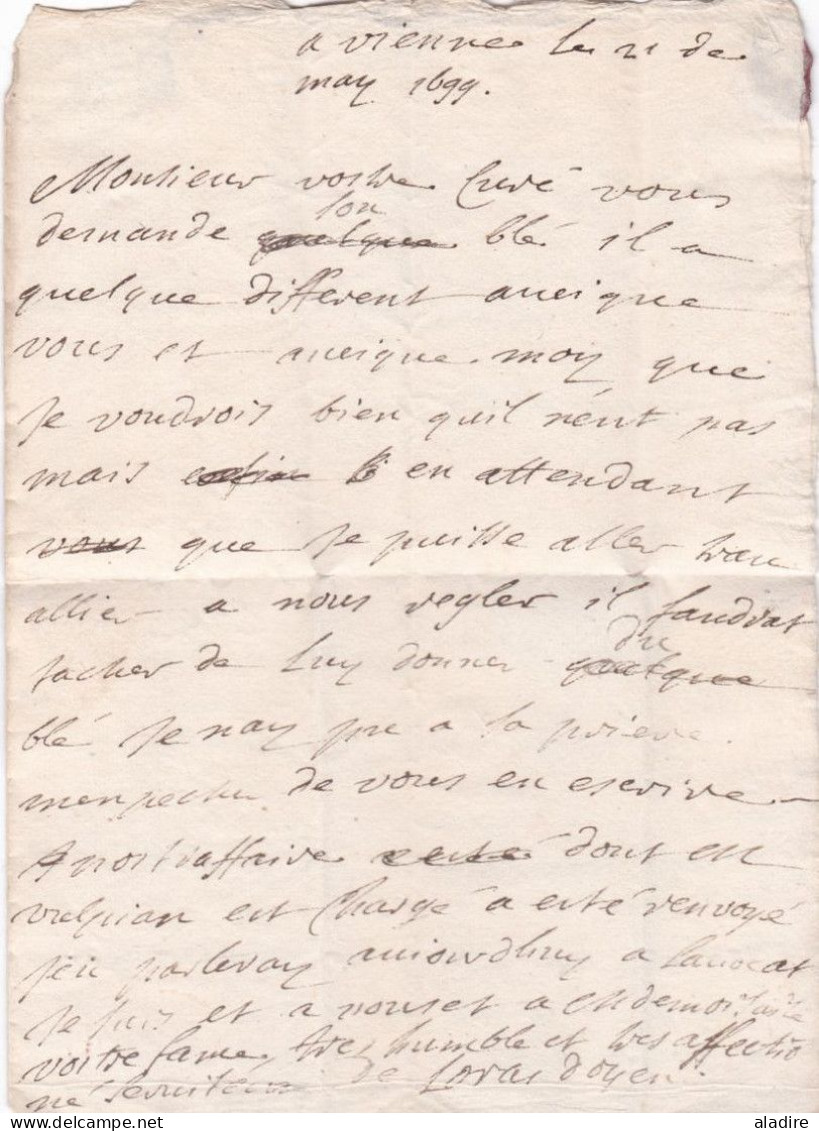 a vienne le 21 de
may 1699.
Monsieur vostre Curé vous
son
demande quelque blé il a
quelque different aueique
vous et aueique moy que
Je voudrois bien quil n'eut pas
mais en attendant
vous que Je puisse aller
allier a nous regler il faudrat
du
tacher de luy donner quelque
blé Je nay pu a sa priere
menpecher de vous en escrire
affaire dont en
vulpian est Chargé a esté renvoyé
J'en parleray auiourdhuy a lauocat
Je suis et a vous et a
vostre fame tres humble et tres affectio
né seruiteur de Loras doyen.
aladire